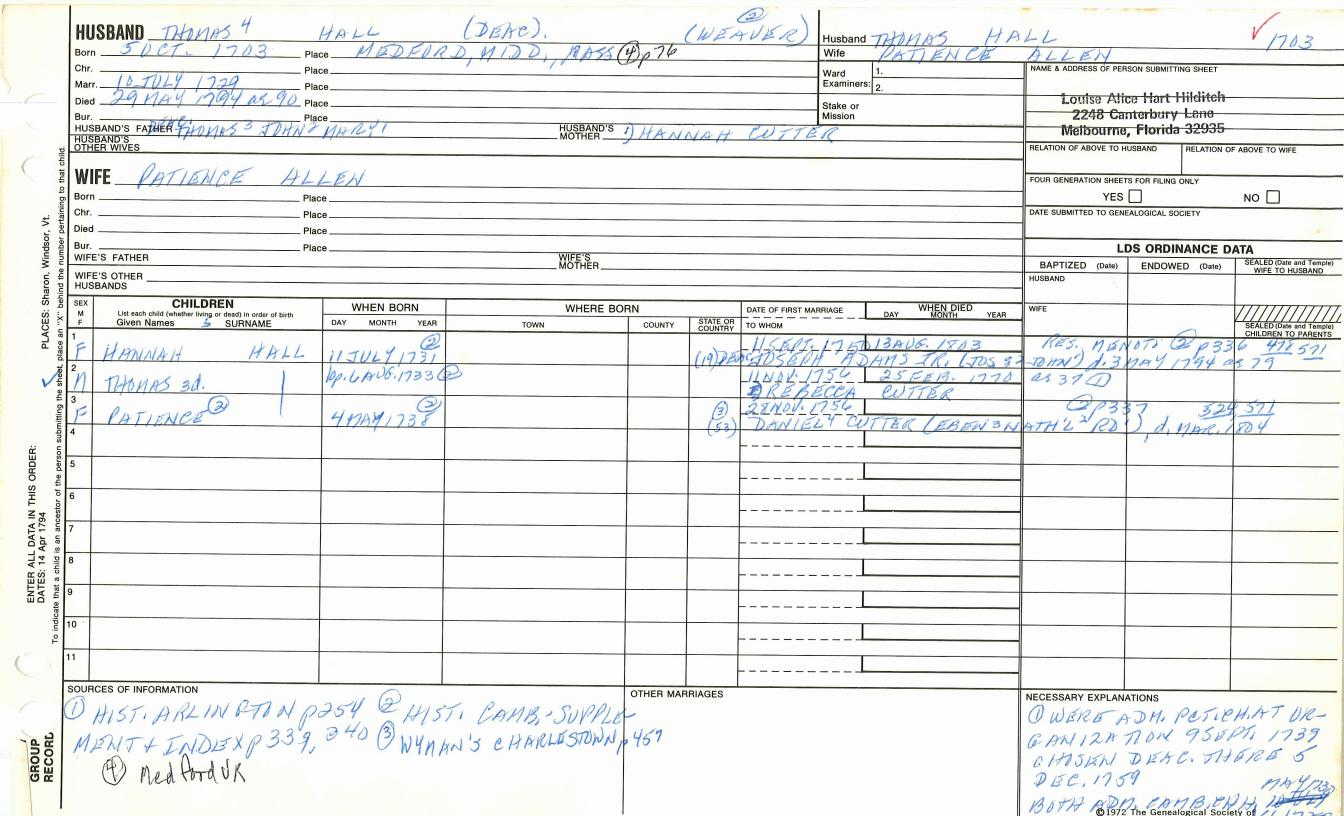 HUSBAND THOMAS 4 HALL (DEAC). (WEAVER) ②
Born 5 OCT. 1703 Place MEDFORD, MIDD., MASS ④ p76
Chr. Place
Marr. 10 JULY 1729 Place
Died 29 MAY 1794 as 90 Place
Bur. Place
HUSBAND'S FATHER DEAC. THOMAS 3 JOHN 2 MARY 1 HUSBAND'S MOTHER 1) HANNAH CUTTER
HUSBAND'S OTHER WIVES
Husband THOMAS HALL 1703
Wife PATIENCE ALLEN
Ward Examiners: 1.
2.
Stake or Mission
NAME & ADDRESS OF PERSON SUBMITTING SHEET
Louise Alice Hart Hilditch
2248 Canterbury Lane
Melbourne, Florida 32935
RELATION OF ABOVE TO HUSBAND RELATION OF ABOVE TO WIFE
FOUR GENERATION SHEETS FOR FILING ONLY
YES NO
DATE SUBMITTED TO GENEALOGICAL SOCIETY
WIFE PATIENCE ALLEN
Born Place
Chr. Place
Died Place
Bur. Place
WIFE'S FATHER WIFE'S MOTHER
WIFE'S OTHER HUSBANDS
LDS ORDINANCE DATA
BAPTIZED (Date) ENDOWED (Date) SEALED (Date and Temple) WIFE TO HUSBAND
HUSBAND
WIFE
SEALED (Date and Temple) CHILDREN TO PARENTS
SEX M F
CHILDREN
List each child (whether living or dead) in order of birth
Given Names 5 SURNAME
WHEN BORN
DAY MONTH YEAR
WHERE BORN
TOWN COUNTY STATE OR COUNTRY
DATE OF FIRST MARRIAGE
TO WHOM
WHEN DIED
DAY MONTH YEAR
1 F HANNAH HALL 11 JULY 1731 ② 13 AUG. 1703 RES. MENOTI ② p336 571
(19) DEAC JOSEPH ADAMS JR. (JOS 3 JOHN) d. 3 MAY 1794 as 79
2 M THOMAS 3d. bp. 6 AUG. 1733 ② 11 NOV. 1756 25 FEB. 1770 as 37 ①
REBECCA CUTTER
3 F PATIENCE ② 4 MAY 1738 ② ③ 28 NOV. 1756 ② p337 524 571
(53) DANIEL 4 CUTTER (EBEN 3 NATH'L 2 RD 1), d. MAR. 1804
4
5
6
7
8
9
10
11
PLACES: Sharon, Windsor, Vt.
ENTER ALL DATA IN THIS ORDER:
DATES: 14 Apr 1794
To indicate that a child is an ancestor of the person submitting the sheet, place an "X" behind the number pertaining to that child.
GROUP RECORD
SOURCES OF INFORMATION
① HIST. ARLINGTON p254 ② HIST. CAMB.-SUPPLE-
MENT & INDEX p 339, 340 ③ WYMAN'S CHARLESTOWN p457
④ Medford VR
OTHER MARRIAGES
NECESSARY EXPLANATIONS
① WERE ADM. PCT. CH. AT OR-
GANIZATION 9 SEPT. 1739
CHOSEN DEAC. THERE 5
DEC. 1759
BOTH ADM. CAMB. CH.
©1972 The Genealogical Society of